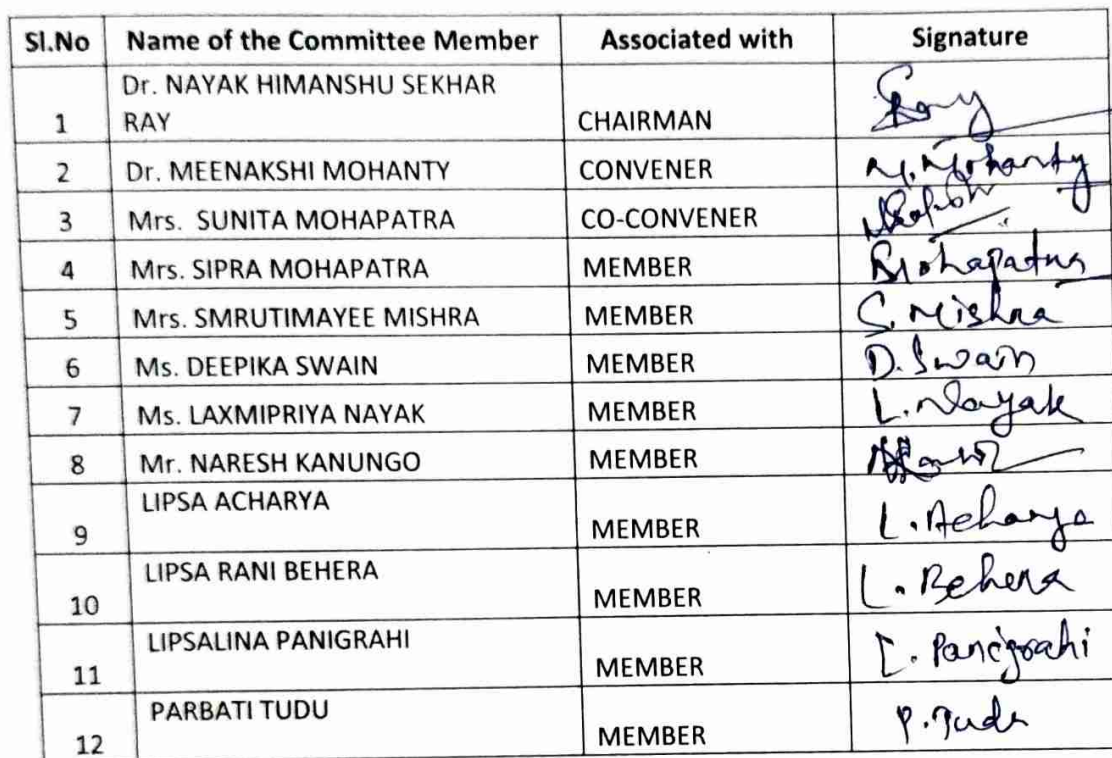 Sl.No Name of the Committee Member Associated with Signature
Dr. NAYAK HIMANSHU SEKHAR
1 RAY CHAIRMAN
2 Dr. MEENAKSHI MOHANTY CONVENER M. Mohanty
3 Mrs. SUNITA MOHAPATRA CO-CONVENER
4 Mrs. SIPRA MOHAPATRA MEMBER SMohapatra
5 Mrs. SMRUTIMAYEE MISHRA MEMBER S. Mishra
6 Ms. DEEPIKA SWAIN MEMBER D. Swain
7 Ms. LAXMIPRIYA NAYAK MEMBER L. Nayak
8 Mr. NARESH KANUNGO MEMBER
LIPSA ACHARYA
9 MEMBER L. Acharya
LIPSA RANI BEHERA
10 MEMBER L. Behera
LIPSALINA PANIGRAHI
11 MEMBER L. Panigrahi
PARBATI TUDU
12 MEMBER P. Tudu